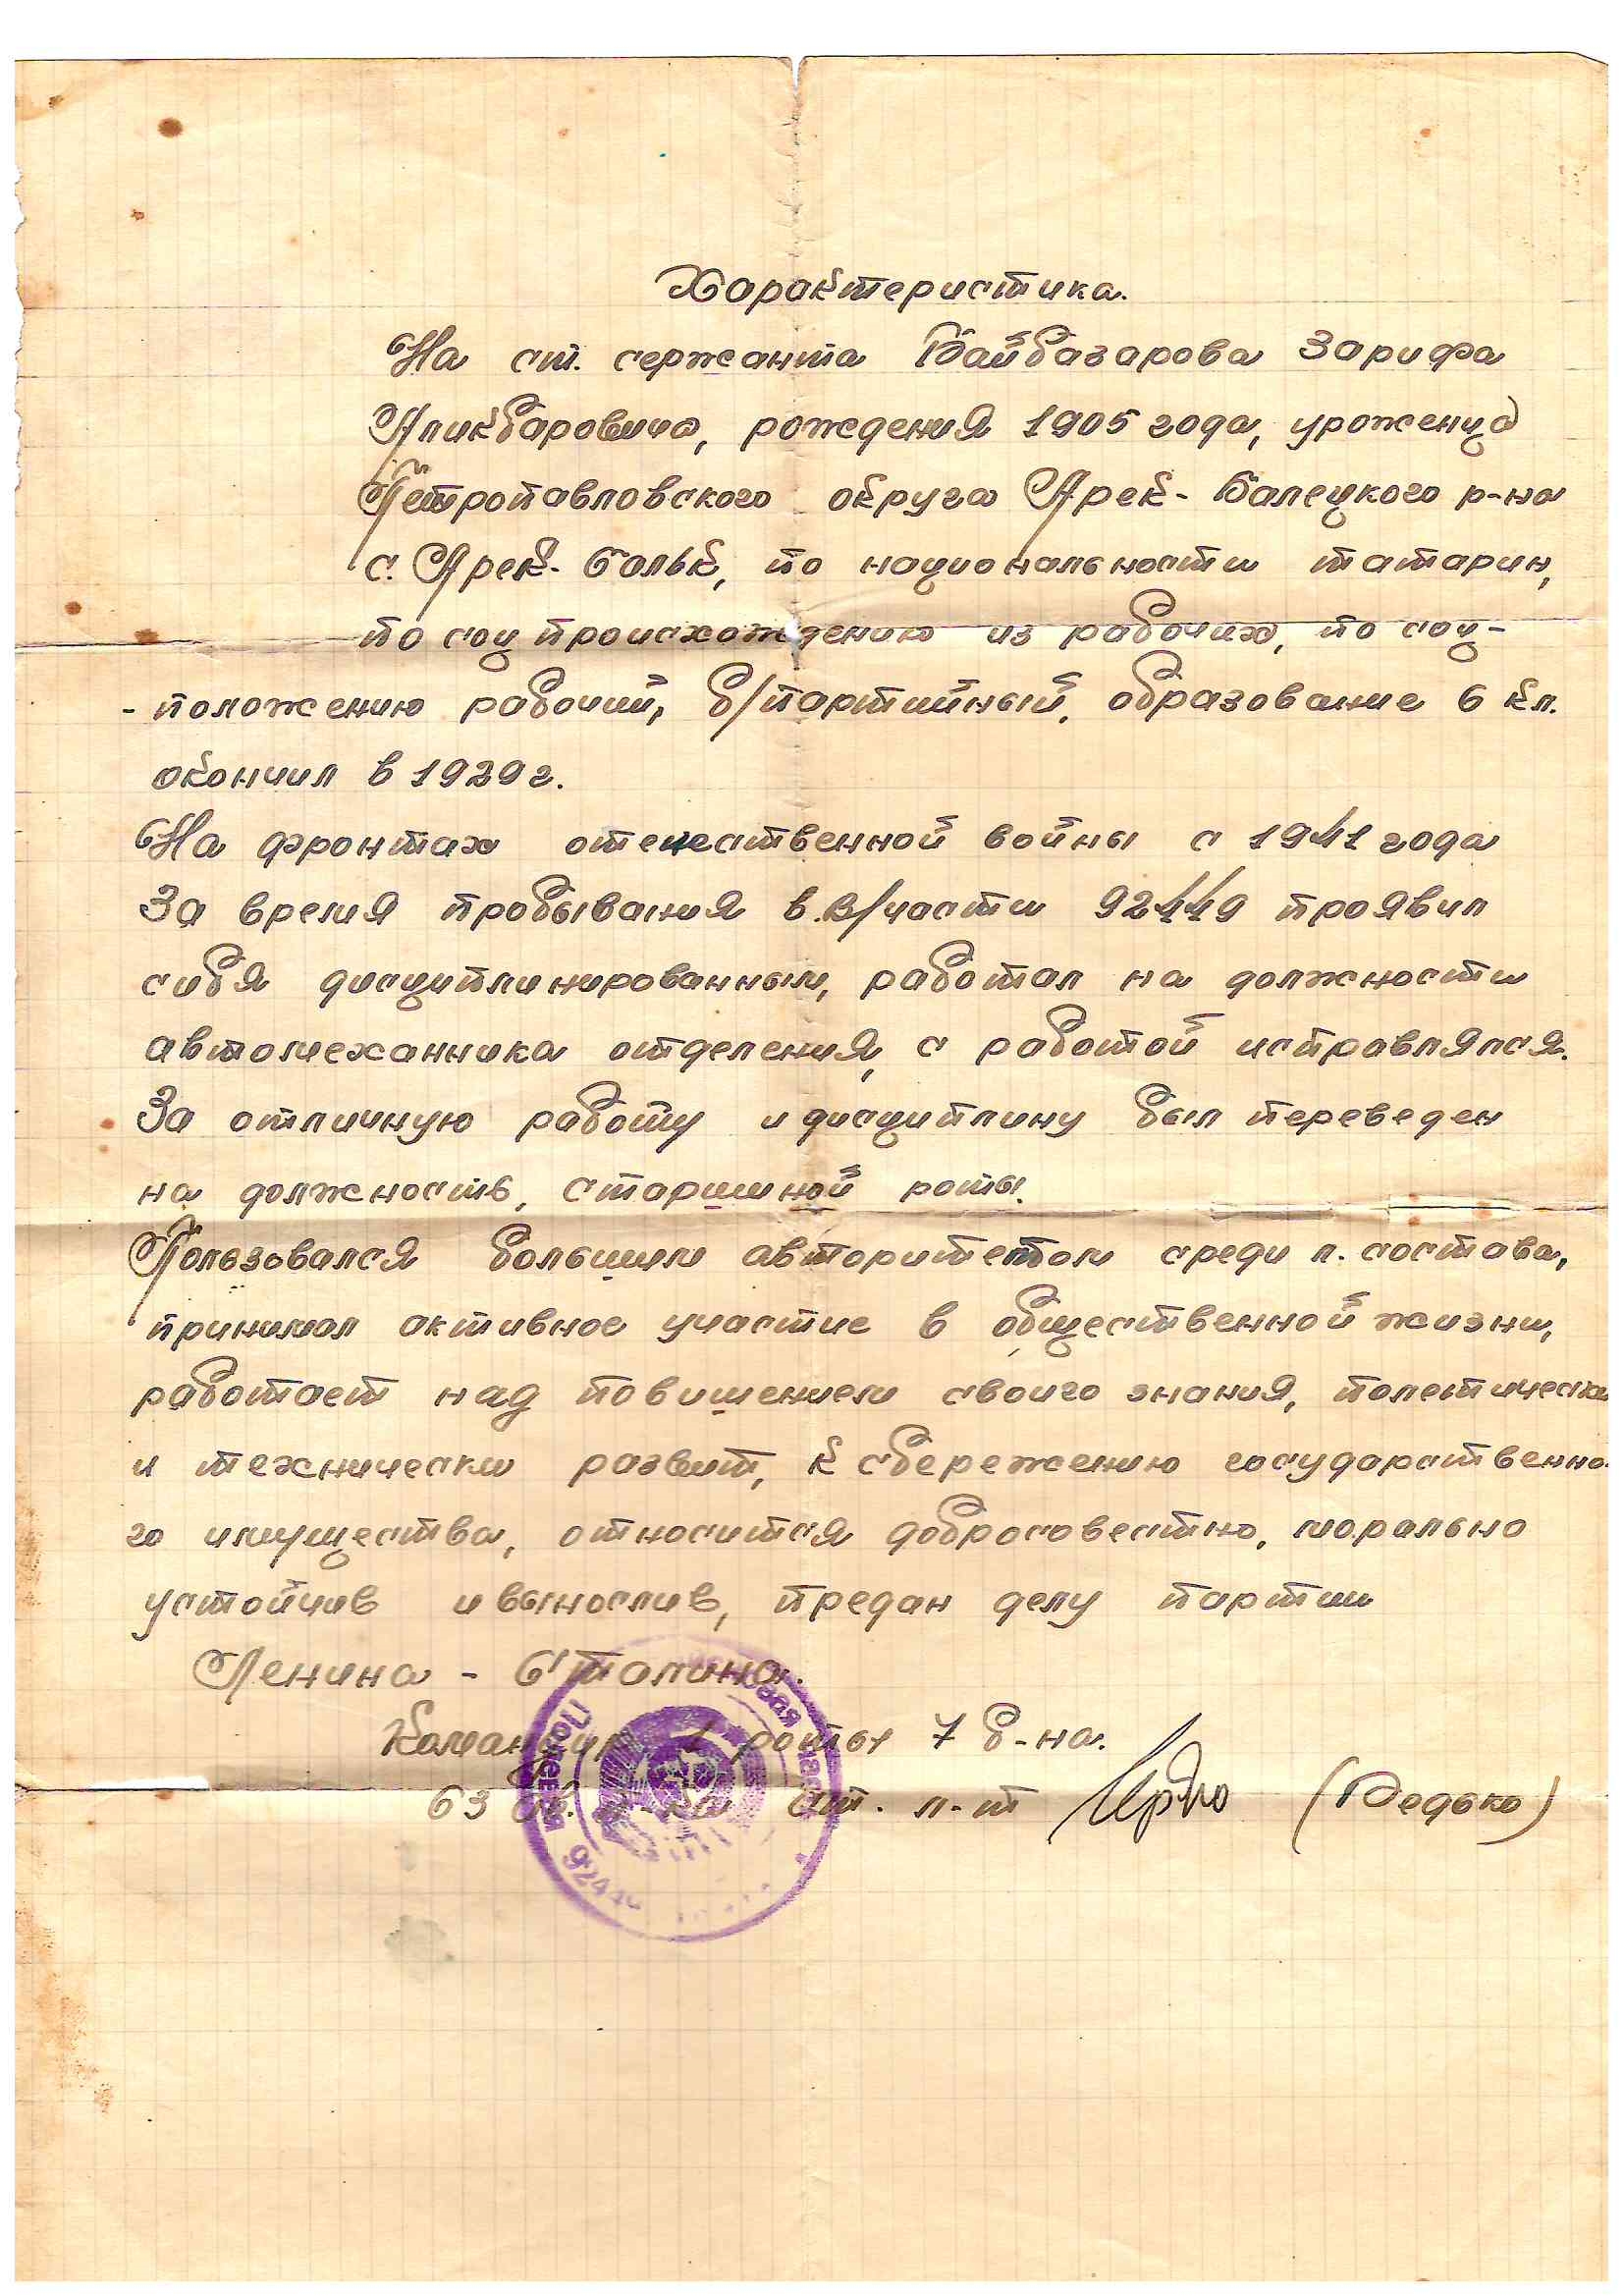 Характеристика.
На ст. сержанта Байбазарова Зарифа
Аликбаровича, рождения 1905 года, уроженца
Петропавловского округа Арек-Балецкого р-на
с. Арек-Больк, по национальности татарин,
по соц происхождению из рабочих, по соц-
-положению рабочий, б/партийный, образование 6 кл.
окончил в 1929 г.
На фронтах отечественной войны с 1941 года
За время пробывания в.в/части 92449 проявил
сибя дисциплинированным, работал на должности
автомеханника отделения, с работой исправлялся.
За отличную работу и дисциплину был переведен
на должность, старшиной роты.
Пользовался большим авторитетом среди л. состава,
принимал активное участие в общественной жизни,
работает над повишением своиго знания, полетически
и технически развит, к сбережению государственно-
го имущества, относится добросовестно, морально
устойчив и вынослив, предан делу партии
Ленина - Сталина.
Командир 1 роты 7 б-на.
63 ст. л-т (Редько)
Полевая 92449